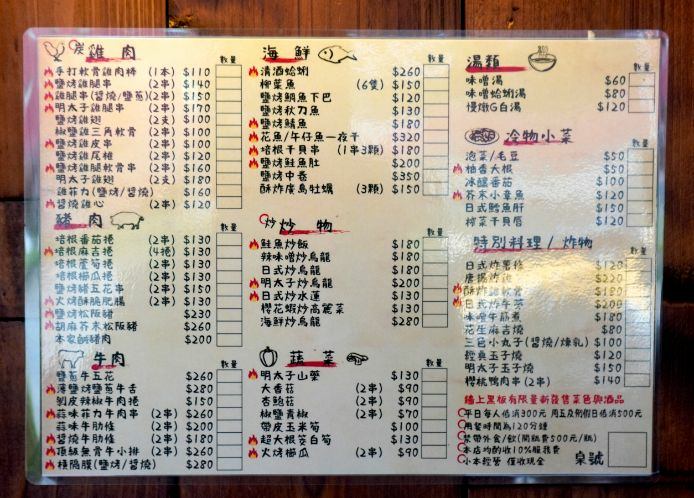 炭 雞肉 數量
手打軟骨雞肉棒 (1本) $110
鹽烤雞腿串 (2串) $140
雞腿串(醬燒/鹽蔥)(2串) $150
明太子雞腿串 (2串) $170
鹽烤雞翅 (2支) $100
椒鹽雞三角軟骨 $100
鹽烤雞皮串 (2串) $100
鹽烤雞尾椎 (2串) $120
鹽烤雞腿軟骨串 (2串) $160
明太子雞翅 (2支) $180
雞菲力(鹽烤/醬燒) $160
醬燒雞心 (2串) $120
豬肉
培根番茄捲 (2串) $130
培根麻吉捲 (4捲) $130
培根蘆筍捲 (2串) $130
培根櫛瓜捲 (2串) $130
鹽烤豬五花串 (2串) $150
火烤酥脆肥腸 (2串) $130
鹽烤松阪豬 $230
胡麻芥末松阪豬 $260
本家鹹豬肉 $200
牛肉 數量
鹽蔥牛五花 $260
薄鹽烤鹽蔥牛舌 $280
剝皮辣椒牛肉捲 $150
蒜味菲力牛肉串 (2串) $260
蒜味牛肋條 (2串) $200
醬燒牛肋條 (2串) $200
頂級無骨牛小排 (2串) $260
極隔膜(鹽烤/醬燒) $280
海鮮 數量
清酒蛤蜊 $260
柳葉魚 (6隻) $150
鹽烤鯛魚下巴 $120
鹽烤秋刀魚 $130
鹽烤鯖魚 $180
花魚/午仔魚一夜干 $320
培根干貝串 (1串3顆) $180
鹽烤鮭魚肚 $200
鹽烤中卷 $350
酥炸廣島牡蠣 (3顆) $150
炒 炒物
鮭魚炒飯 $180
辣味噌炒烏龍 $180
日式炒烏龍 $180
明太子炒烏龍 $200
日式炒水蓮 $130
櫻花蝦炒高麗菜 $130
海鮮炒烏龍 $280
蔬菜 數量
明太子山藥 $130
大香菇 (2串) $90
杏鮑菇 (2串) $90
椒鹽青椒 (2串) $70
帶皮玉米筍 $100
超大根筊白筍 $130
火烤櫛瓜 (2串) $90
湯類 數量
味噌湯 $60
味噌蛤蜊湯 $80
慢燉G白湯 $120
冷物小菜
泡菜/毛豆 $50
柚香大根 $50
冰釀番茄 $100
芥末小章魚 $120
日式鱈魚肝 $120
榨菜干貝唇 $120
特別料理/炸物
日式炸薯條 $120
唐揚炸雞 $220
酥炸雞軟骨 $180
日式炸牛蒡 $200
味噌牛筋煮 $180
花生麻吉燒 $80
三色小丸子(醬燒/煉乳) $100
經典玉子燒 $120
明太子玉子燒 $150
櫻桃鴨肉串(2串) $140
牆上黑板有限量新發售菜色與酒品
平日每人低消300元 周五及例假日低消500元
用餐時間為120分鐘
禁帶外食/飲(開瓶費500元/瓶)
本店均酌收10%服務費
小本經營 僅收現金
桌號